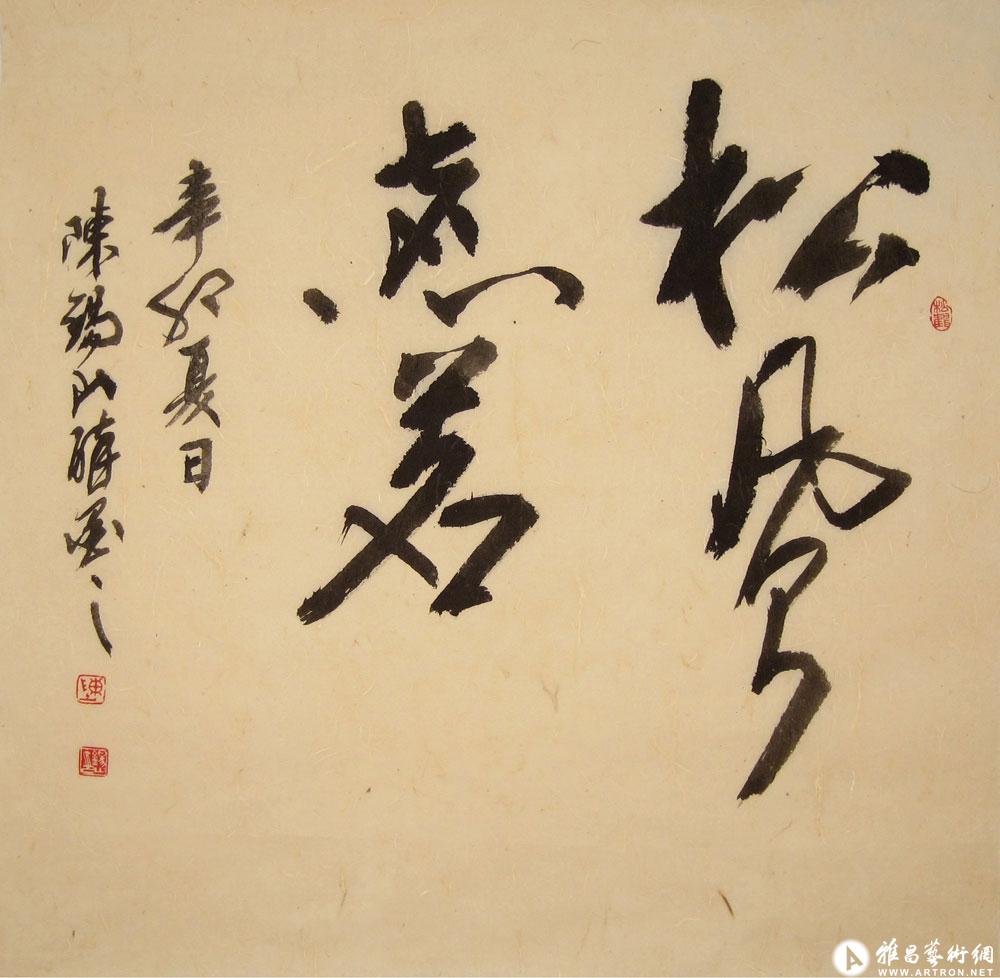 松風
煮茗
辛卯夏日
陳錫山醉墨之
雅昌藝術網
WWW.ARTRON.NET